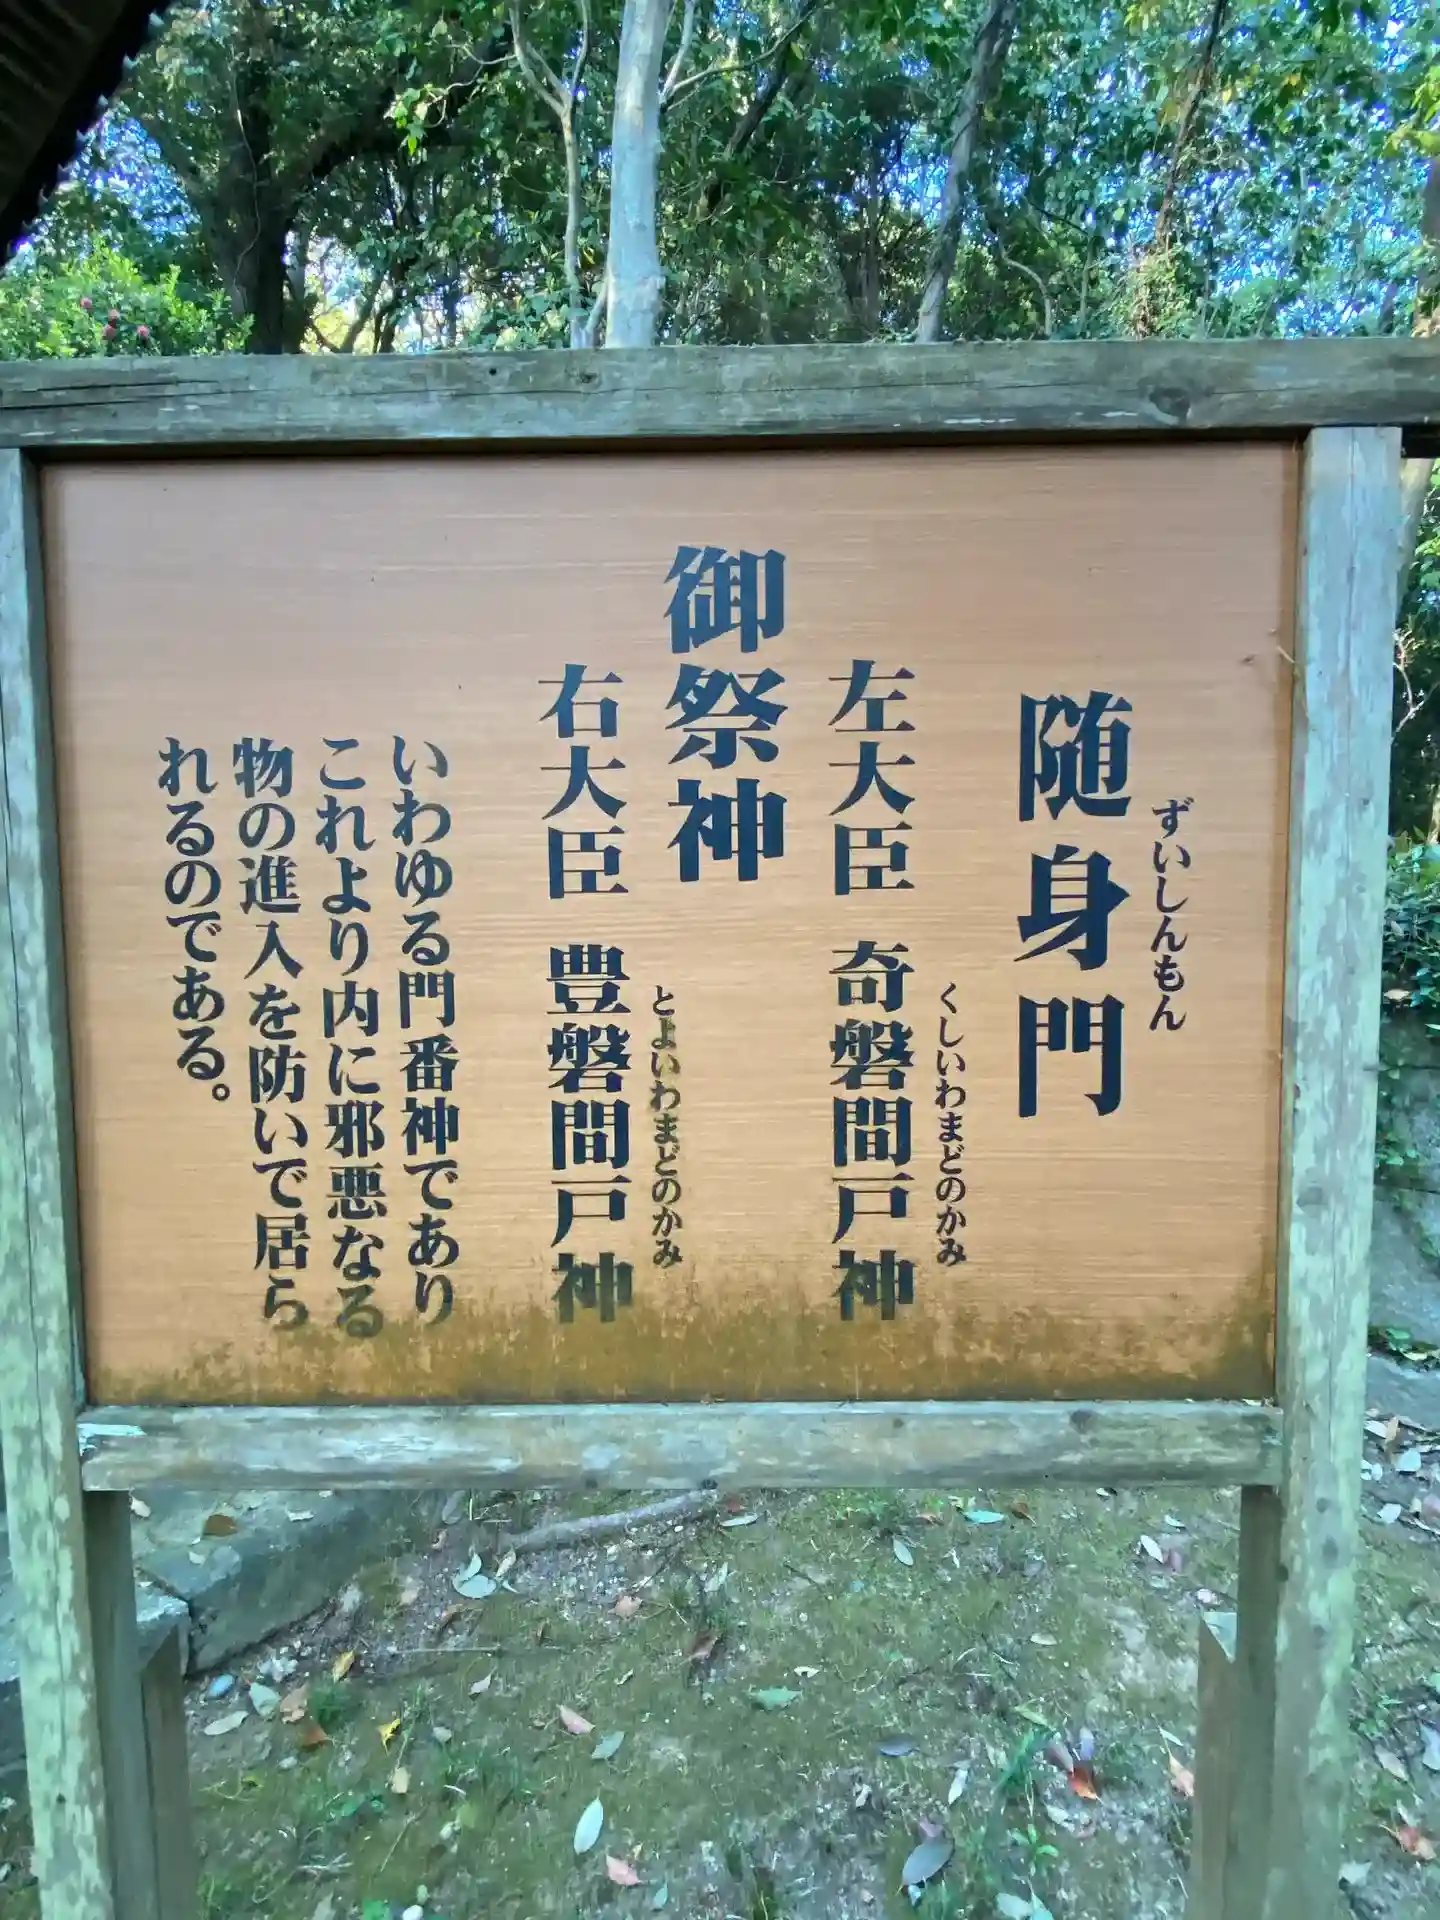 随身門
ずいしんもん
御祭神
左大臣 奇磐間戸神
くしいわまどのかみ
右大臣 豊磐間戸神
とよいわまどのかみ
いわゆる門番神であり
これより内に邪悪なる
物の進入を防いで居ら
れるのである。